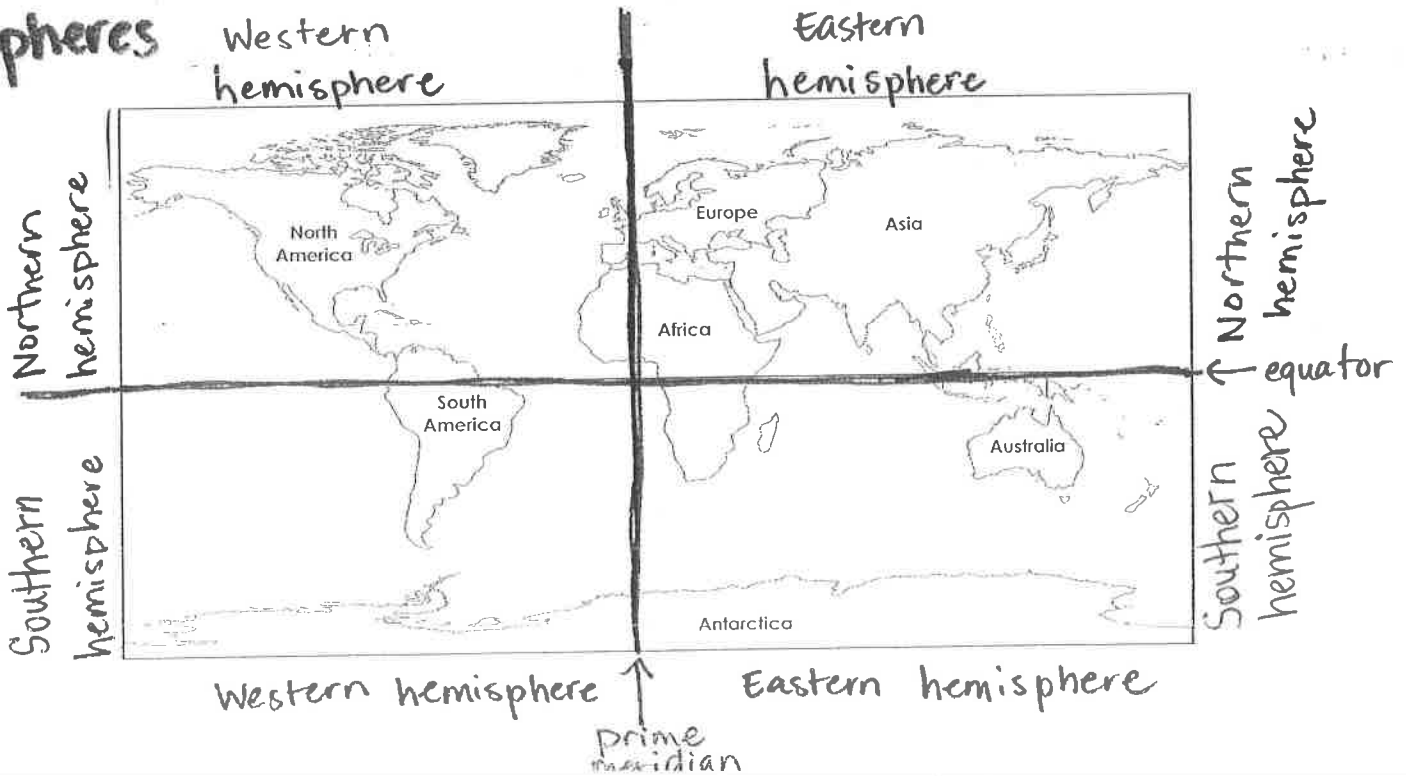 pheres
Western
hemisphere
Eastern
hemisphere
Northern
hemisphere
Northern
hemisphere
North
America
Europe
Asia
Africa
equator
South
America
Australia
Southern
hemisphere
Southern
hemisphere
Antarctica
Western hemisphere
Eastern hemisphere
prime
meridian